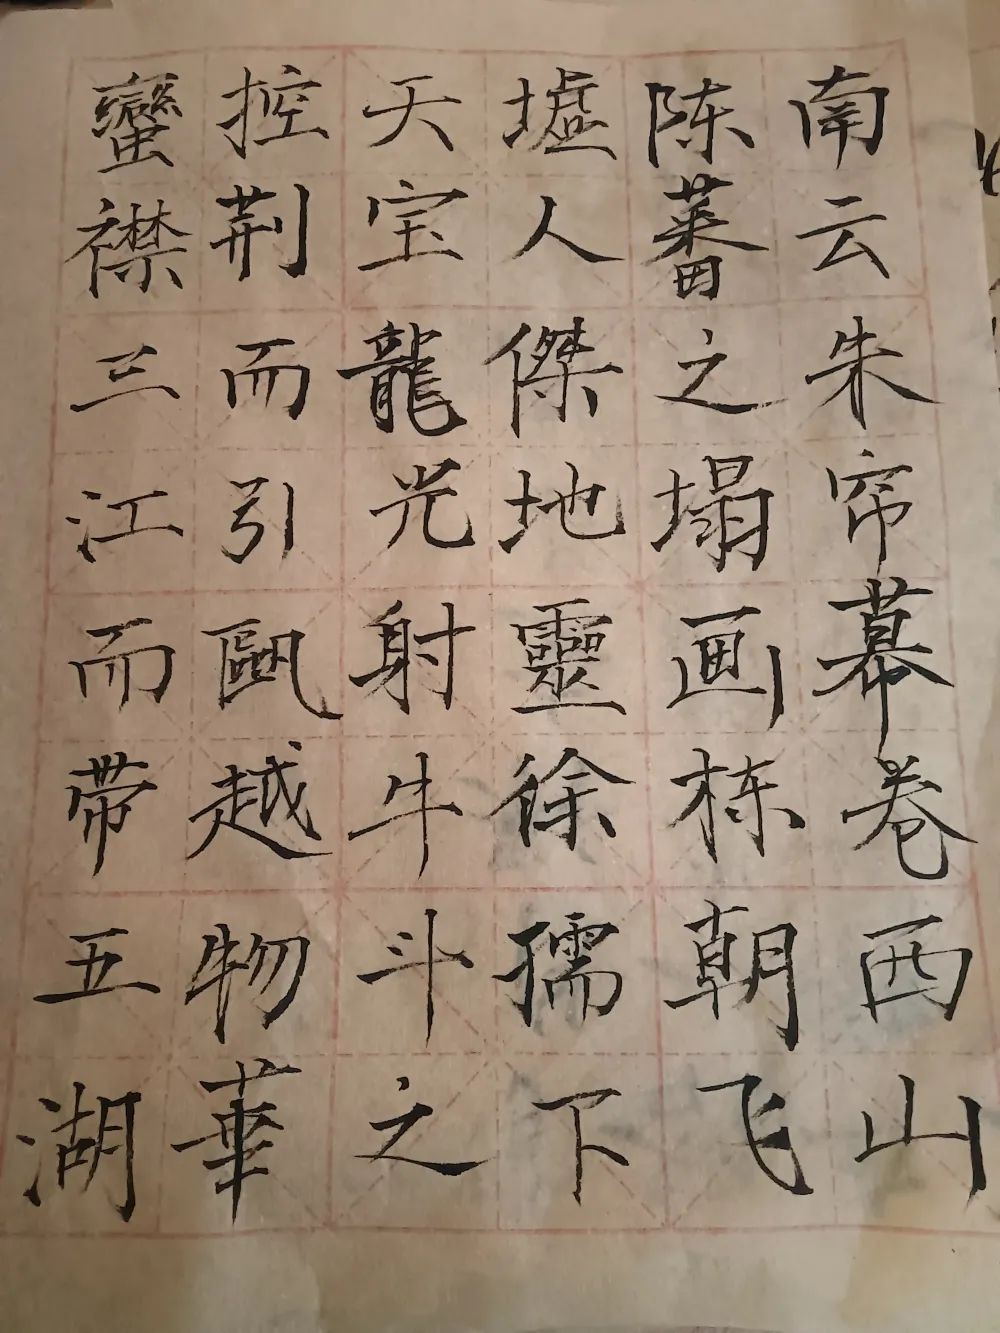 南云朱帘幕卷西山
陈蕃之塌画栋朝飞
墟人傑地靈徐孺下
天宝龍光射牛斗之
控荆而引甌越物華
蠻襟三江而带五湖